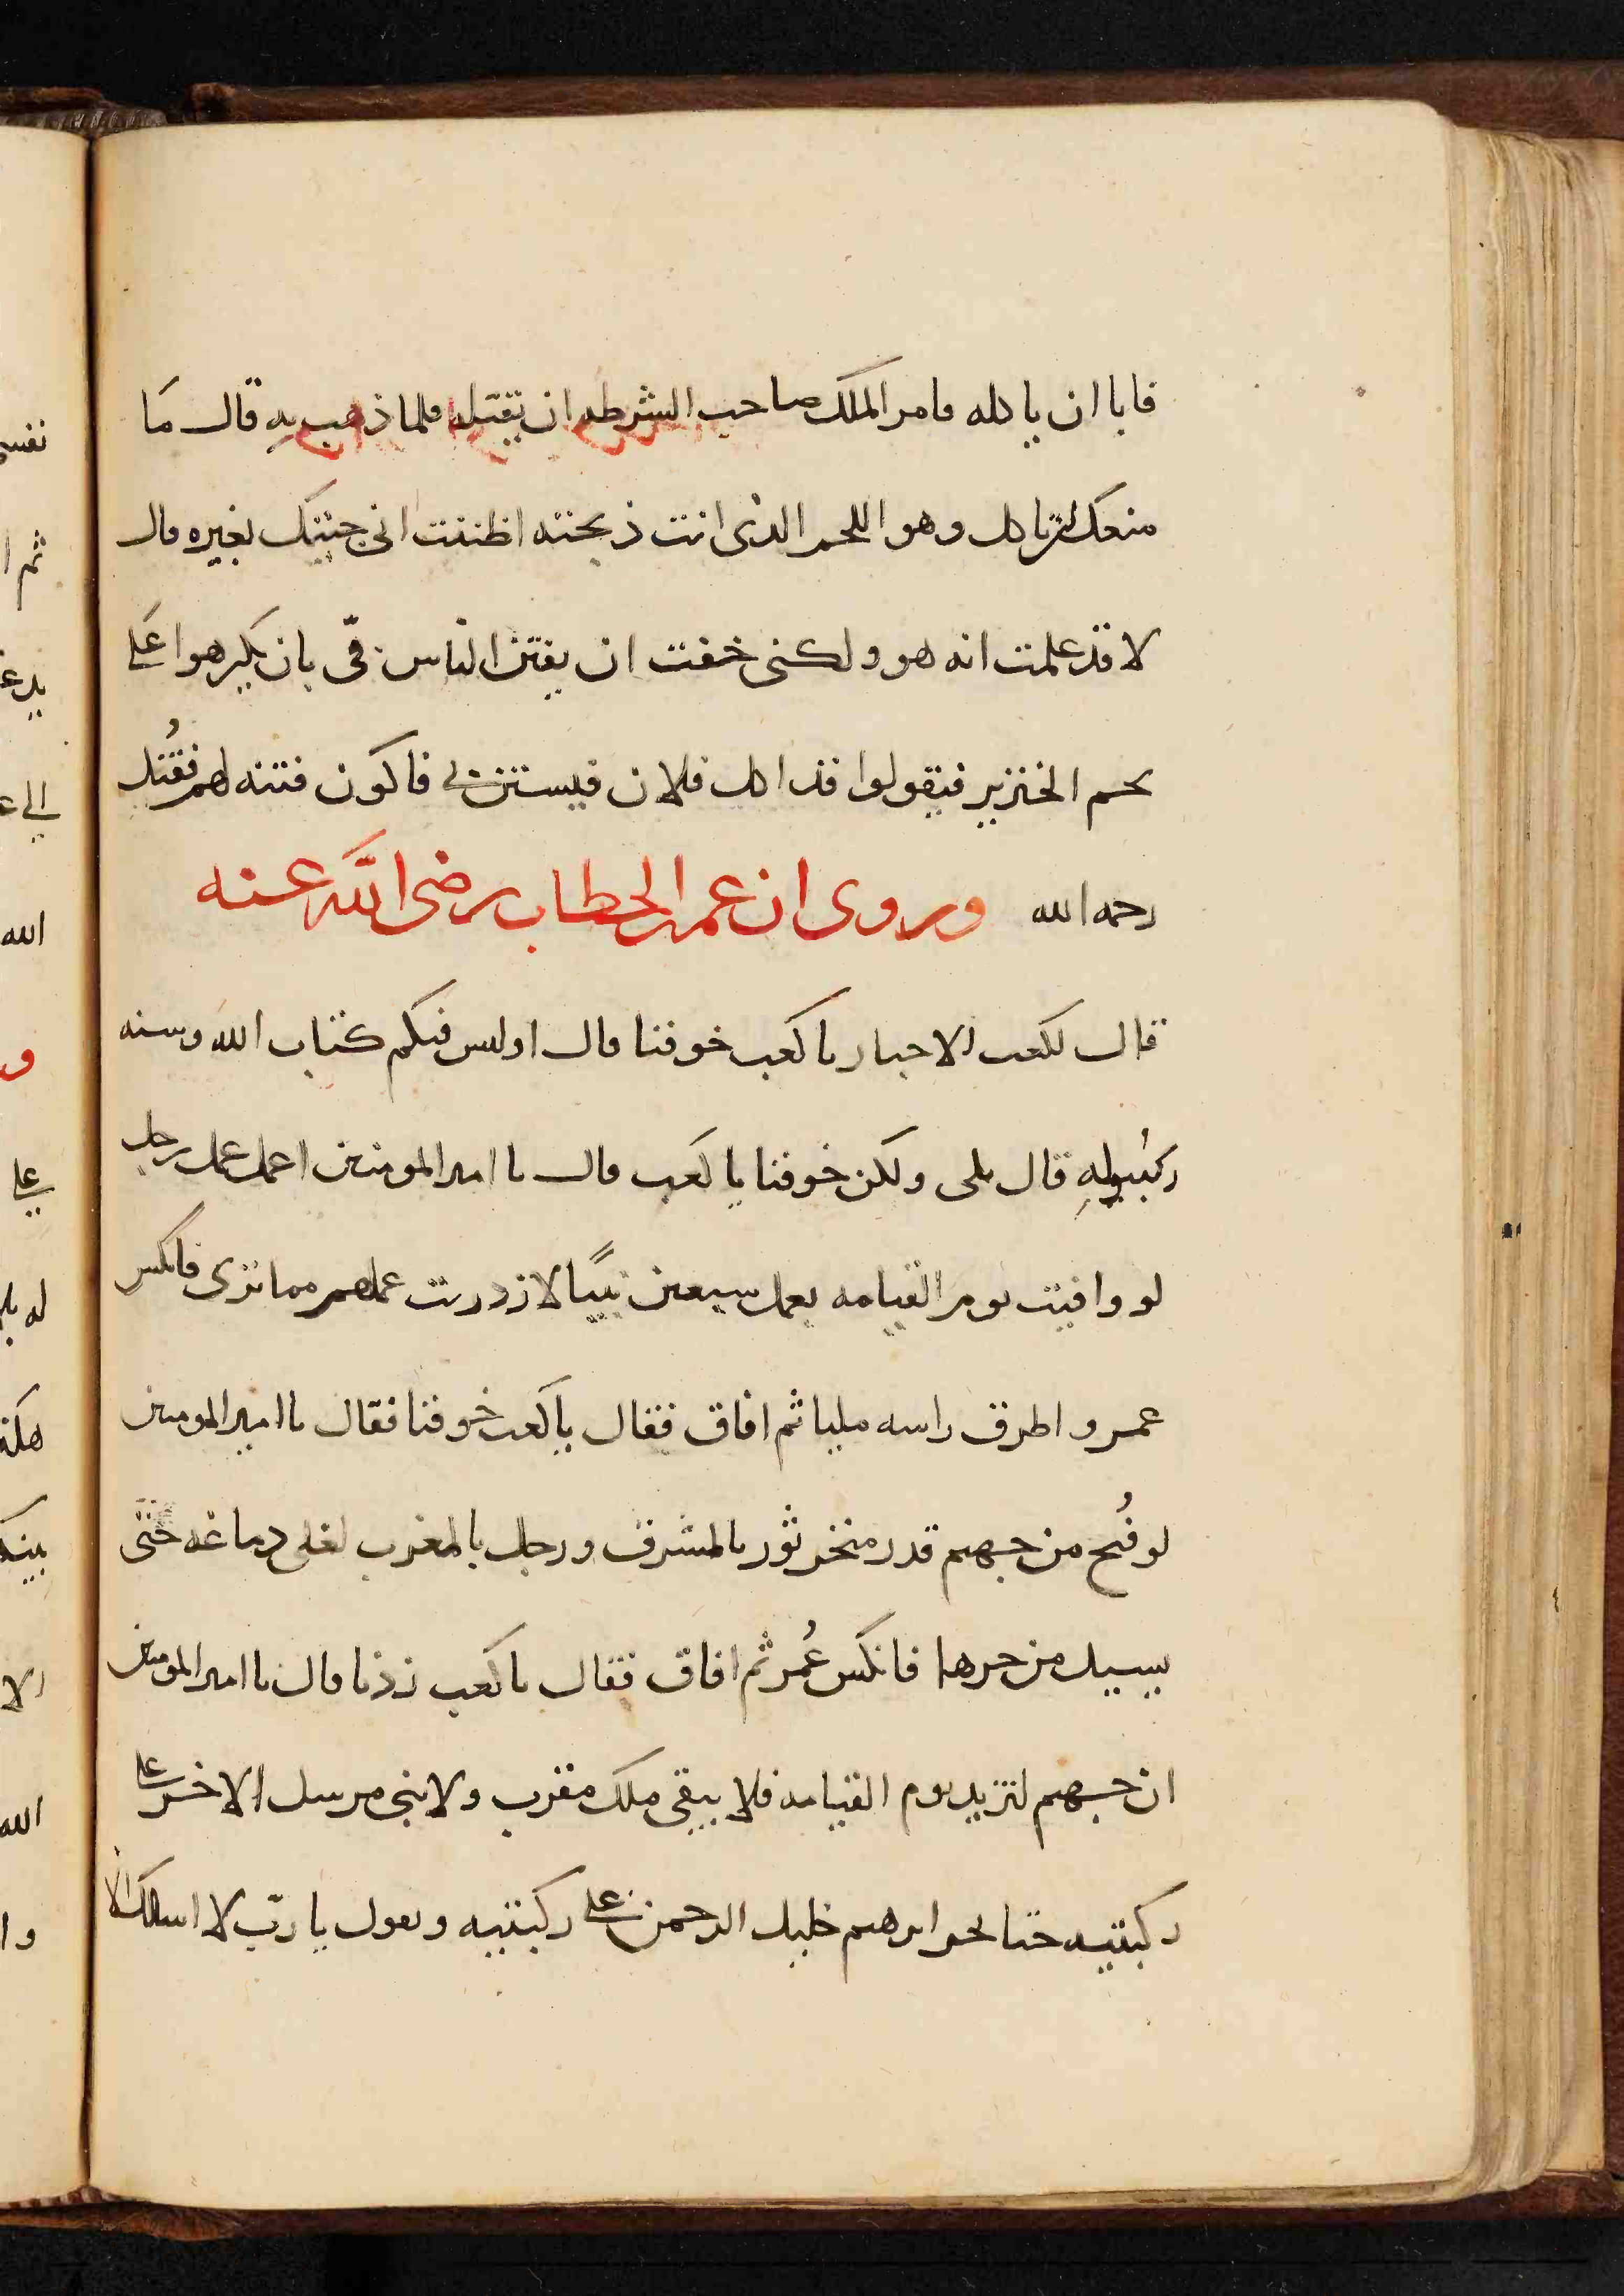 فابا ان ياكله فامر الملك صاحب الشرطه ان يقتله فلما ذهب به قال مَا
منعك ان تاكل وهو اللحم الذى انت ذبحته اظننت انى جئتك بغيره قال
لا قد علمت انه هو ولكنى خفت ان يفتن الناس فىّ بان يكرهوا عَلى
لحم الخنزير فيقولوا قد اكل فلان فيستن بى فاكون فتنه لهم فقُتل
رحمه الله وروى ان عمر بن الخطاب رضى اللّه عنه
قال لكعب الاحبار يا كعب خوفنا قال اوليس فيكم كتاب الله وسنه
رسُولهِ قال بلى ولكن خوفنا يا كعب قال يا امير المومنين اعمل عمل رجل
لو وافيت يوم القيامه بعمل سبعين نبيًا لازدريت عملهم مما ترى فانكس
عمر و اطرق راسه مليا ثم افاق فقال يا كعب خوفنا فقال يا امير المومنين
لو فُتح من جهنم قدر منخر ثور بالمشرق ورجل بالمغرب لغلى دماغه حتّى
يسيل من حرها فانكس عُمر ثم افاق فقال يا كعب زدنا قال يا امير المومنين
ان جهنم لتزيد يوم القيامه فلا يبقى ملك مقرب ولا نبى مرسل الا خر على
ركبتيه حتا يخر ابرهيم خليل الرحمن على ركبتيه ويقول يا ربّ لا اسالك الا